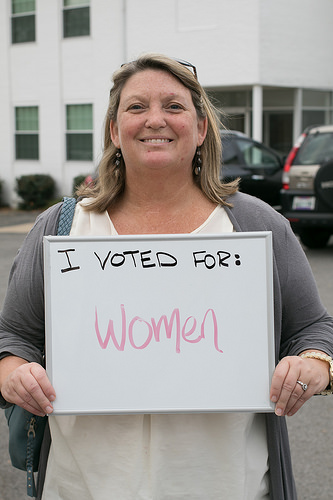 I VOTED FOR:
Women